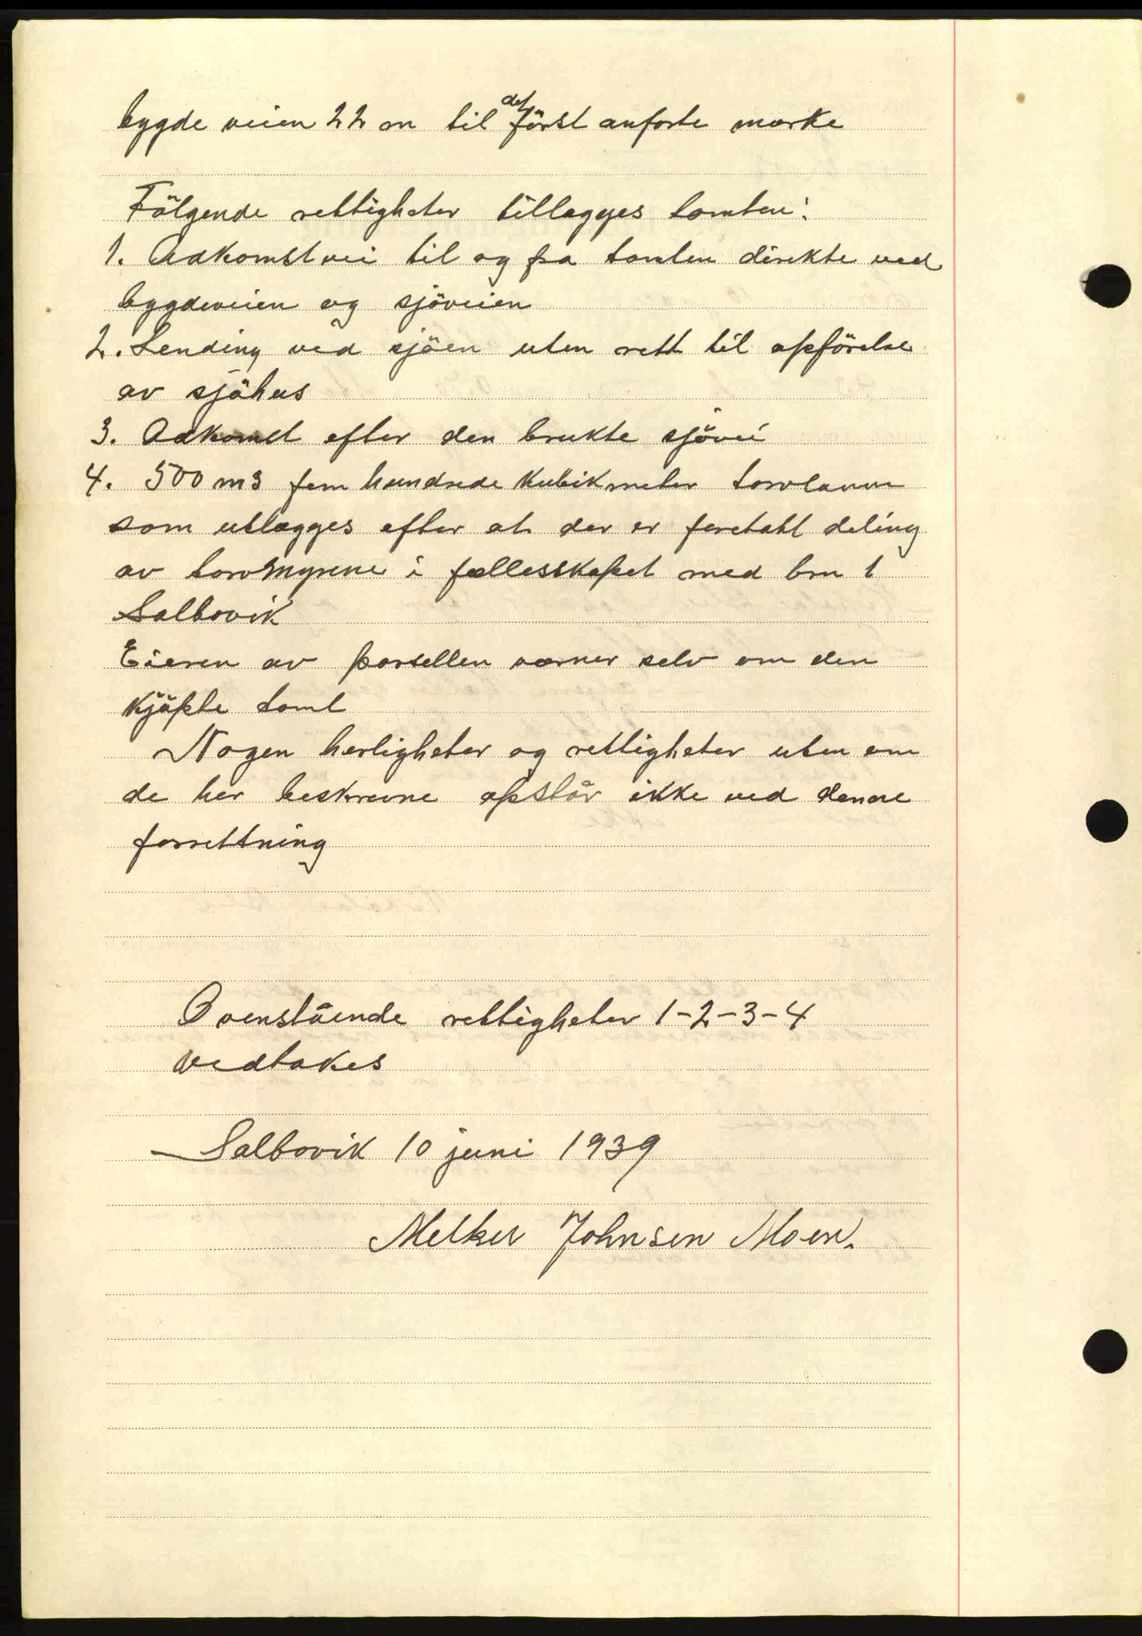 bygde veien 22 m til det först anförte merke
Fölgende rettigheter tillegges tomten:
1. Adkomstvei til og fra tomten direkte ved
bygdeveien og sjöveien
2. Lending ved sjöen uten rett til opförelse
av sjöhus
3. Adkomst efter den brukte sjövei
4. 500 m3 fem hundrede kubikmeter torvtanne
som utlægges efter at der er foretatt deling
av torvmyrene i fællesskapet med brn 1
Saltbovik
Eieren av parsellen værner selv om den
kjöpte tomt
Nogen herligheter og rettigheter uten om
de her beskrevne opstår ikke ved denne
forrettning
Ovenstående rettigheter 1-2-3-4
vedtakes
Salbovik 10 juni 1939
Melker Johnsen Moen.